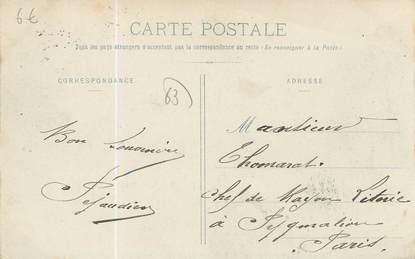 6€
CARTE POSTALE
Tous les pays étrangers n'acceptent pas la correspondance au recto (Se renseigner à la Poste)
CORRESPONDANCE
63
ADRESSE
Bon Souvenir
Monsieur
Thomarat
Chef de Rayon Literie
à Pygmalion
Paris